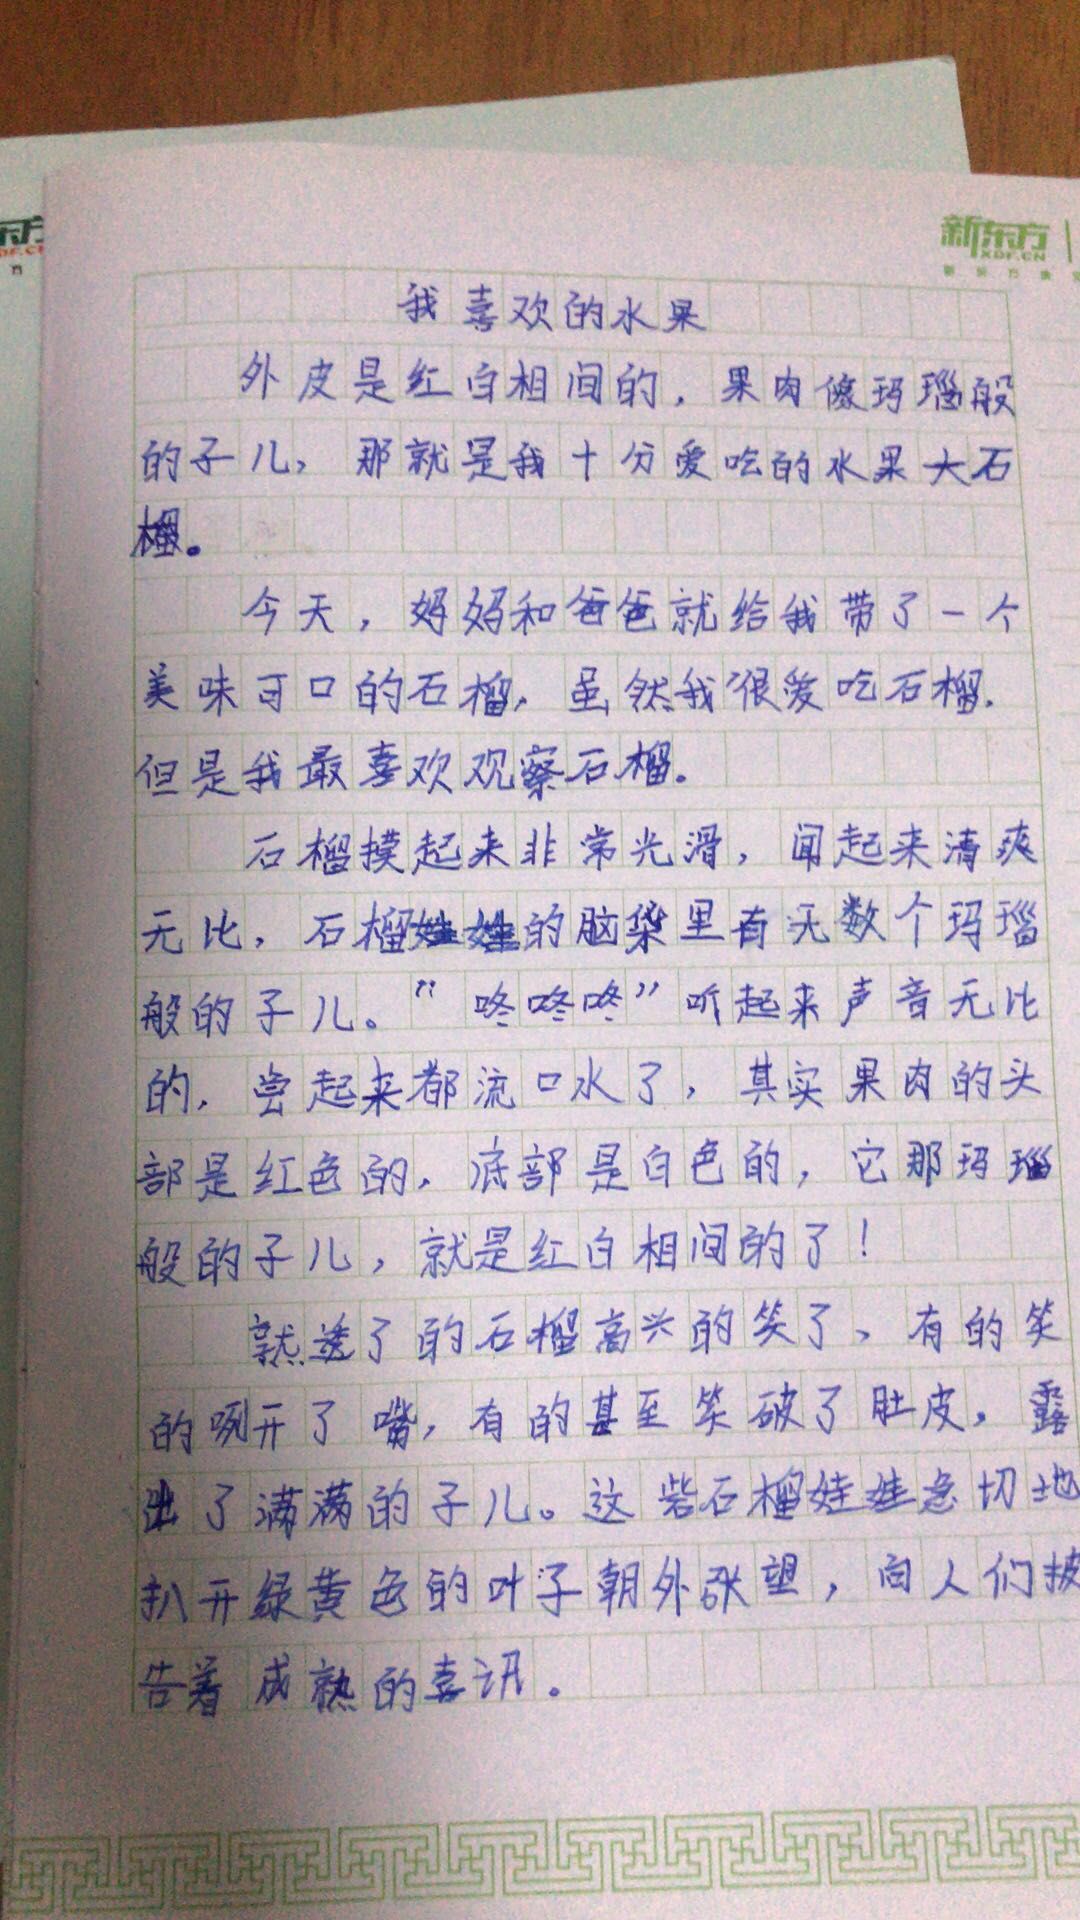 新东方
XDF.CN
我喜欢的水果
外皮是红白相间的，果肉像玛瑙般
的子儿，那就是我十分爱吃的水果大石
榴。
今天，妈妈和爸爸就给我带了一个
美味可口的石榴，虽然我很爱吃石榴.
但是我最喜欢观察石榴.
石榴摸起来非常光滑，闻起来清爽
无比，石榴娃娃的脑袋里有无数个玛瑙
般的子儿。“咚咚咚”听起来声音无比
的，尝起来都流口水了，其实果肉的头
部是红色的，底部是白色的，它那玛瑙
般的子儿，就是红白相间的了！
就透了的石榴高兴的笑了、有的笑
的咧开了嘴，有的甚至笑破了肚皮，露
出了满满的子儿。这些石榴娃娃急切地
扒开绿黄色的叶子朝外张望，向人们披
告着成熟的喜讯.